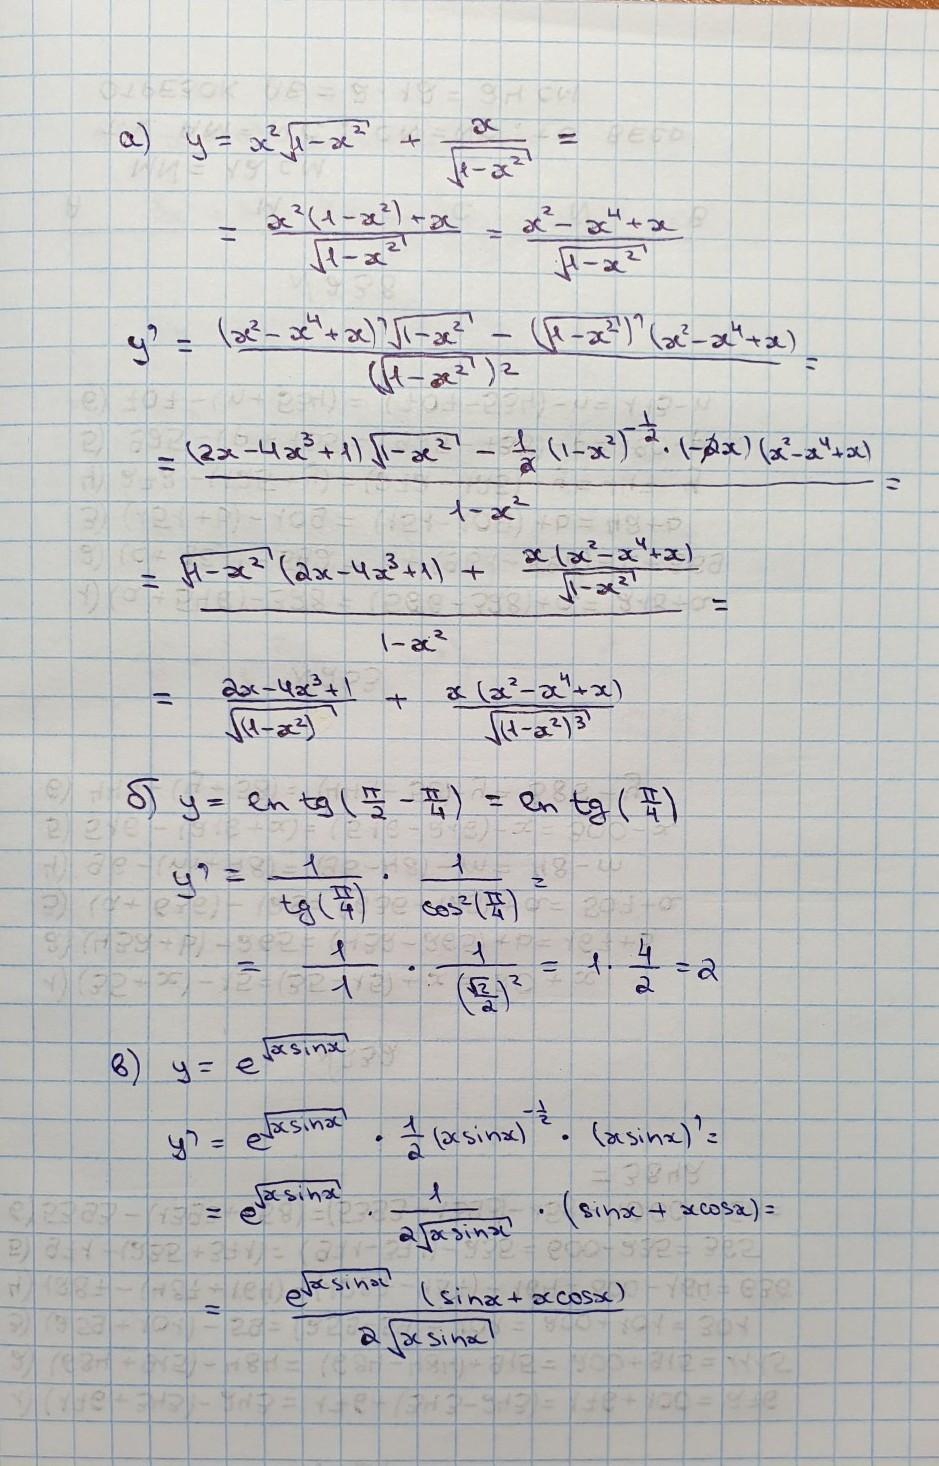 а) y = x²√(1-x²) + x/√(1-x²) =
= (x²(1-x²)+x)/√(1-x²) = (x²-x⁴+x)/√(1-x²)
y' = ((x²-x⁴+x)'√(1-x²) - (√(1-x²))'(x²-x⁴+x))/(√(1-x²))² =
= ((2x-4x³+1)√(1-x²) - 1/2 (1-x²)^(-1/2) · (-2x)(x²-x⁴+x))/(1-x²) =
= (√(1-x²)(2x-4x³+1) + x(x²-x⁴+x)/√(1-x²))/(1-x²) =
= (2x-4x³+1)/√(1-x²) + x(x²-x⁴+x)/√((1-x²)³)
б) y = ln tg(π/2 - π/4) = ln tg(π/4)
y' = 1/tg(π/4) · 1/cos²(π/4) =
= 1/1 · 1/(√2/2)² = 1 · 4/2 = 2
в) y = e^√(xsinx)
y' = e^√(xsinx) · 1/2 (xsinx)^(-1/2) · (xsinx)' =
= e^√(xsinx) · 1/(2√(xsinx)) · (sinx + xcosx) =
= e^√(xsinx) (sinx + xcosx)/(2√(xsinx))